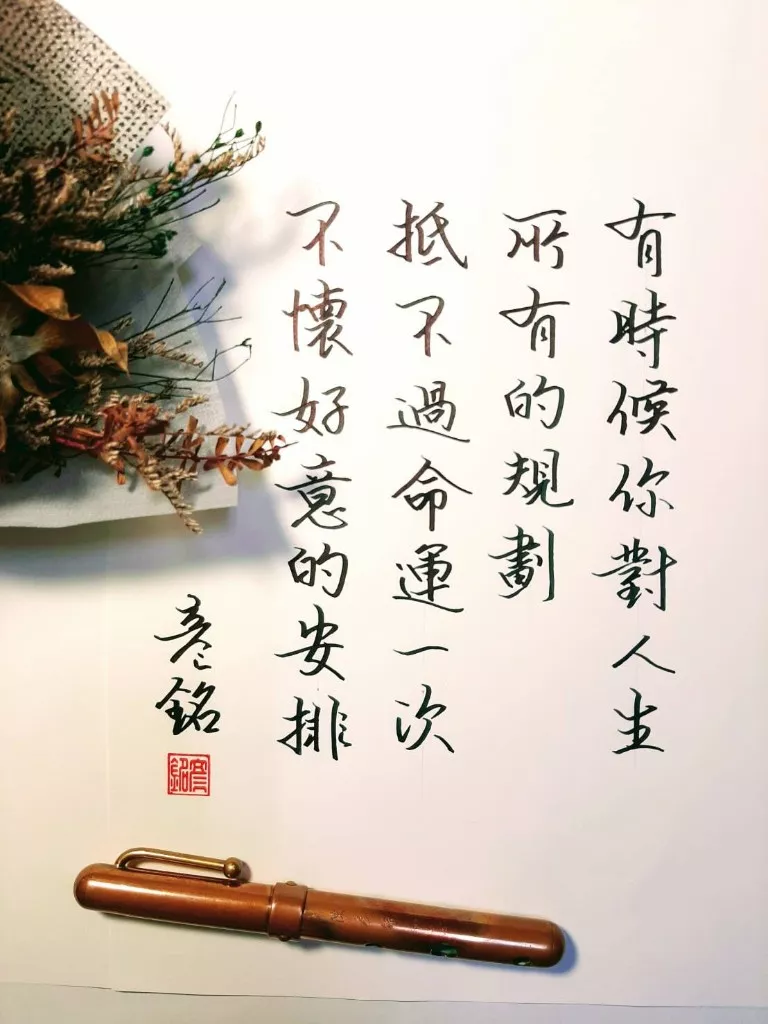 有時候你對人生
所有的規劃
抵不過命運一次
不懷好意的安排
彥銘
彥銘